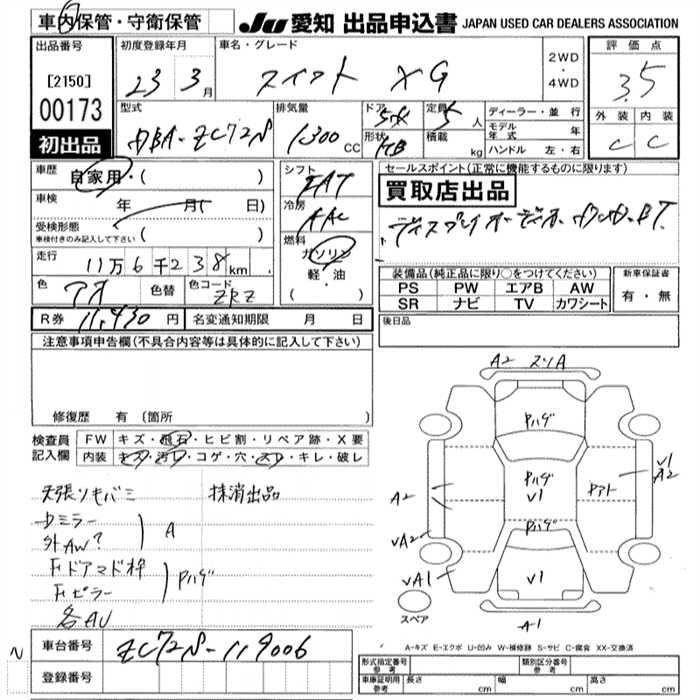 車内保管・守衛保管
JU 愛知 出品申込書 JAPAN USED CAR DEALERS ASSOCIATION
出品番号
[2150]
00173
初出品
初度登録年月
23 3月
車名・グレード
スイフト XG
2WD
・
4WD
評価点
3.5
外装 内装
C C
型式
DBA-ZC72S
排気量
1300 CC
ドア
5
定員
5人
形状
HB
積載
kg
ディーラー・並行
モデル年式 年
ハンドル 左・右
車歴
自家用・( )
車検
年 月( 日)
受検形態
車検付きのみ記入して下さい ( )
走行
11万6千238km
色
アオ
色替
色コード
ZRZ
シフト
FAT
冷房
AAC
燃料
ガソリン
軽・油
( )
R券 11,430円
名変通知期限 月 日
セールスポイント(正常に機能するものに限ります)
買取店出品
ディスプレイオーディオ
装備品(純正品に限り○をつけてください)
PS PW エアB AW
SR ナビ TV カワシート
新車保証書
有・無
後日品
注意事項申告欄(不具合内容等は具体的に記入して下さい)
修復歴 有 (箇所
検査員
記入欄
FW キズ・飛石・ヒビ割・リペア跡・X要
内装 キズ・汚れ・コゲ・穴・スレ・キレ・破レ
天張りモバミ
抹消出品
Dミラー
外AW?
A
Fドアマド枠
Fピラー
Pハゲ
各AU
A2 スリA
Pハゲ
Pハゲ
V1
Pハゲ
V1
Pアト
V1
A2
A2
VA2
VA1
A1
スペア
A-キズ E-エクボ U-凹み W-補修跡 S-サビ C-腐食 XX-交換済
N
車台番号
ZC72S-119006
登録番号
形式指定番号
参考
類別区分番号
参考
車庫証明用
参考
長さ cm
幅 cm
高さ cm